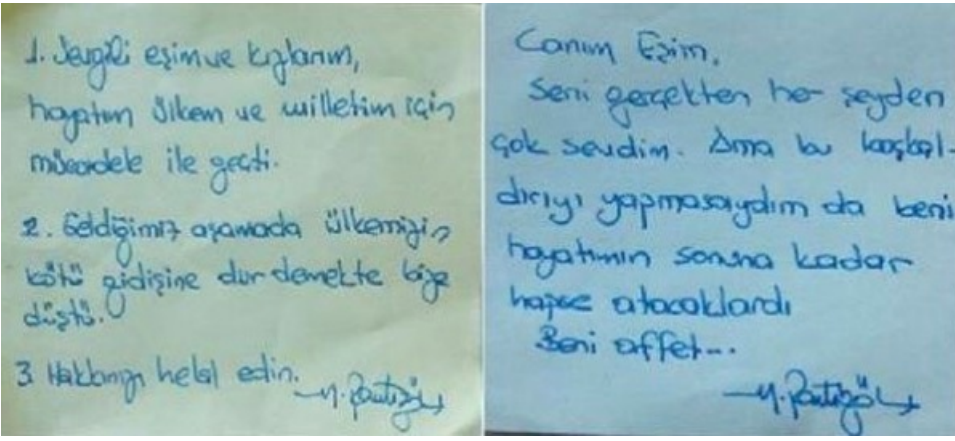 1. Sevgili eşim ve kızlarım,
hayatım ülkem ve milletim için
mücadele ile geçti.
2. Geldiğimiz aşamada ülkemizin
kötü gidişine dur demekte bize
düştü.
3 Hakkınızı helal edin.
Canım Eşim,
Seni gerçekten her şeyden
çok sevdim. Ama bu başkal-
dırıyı yapmasaydım da beni
hayatımın sonuna kadar
hapse atacaklardı
Beni affet...